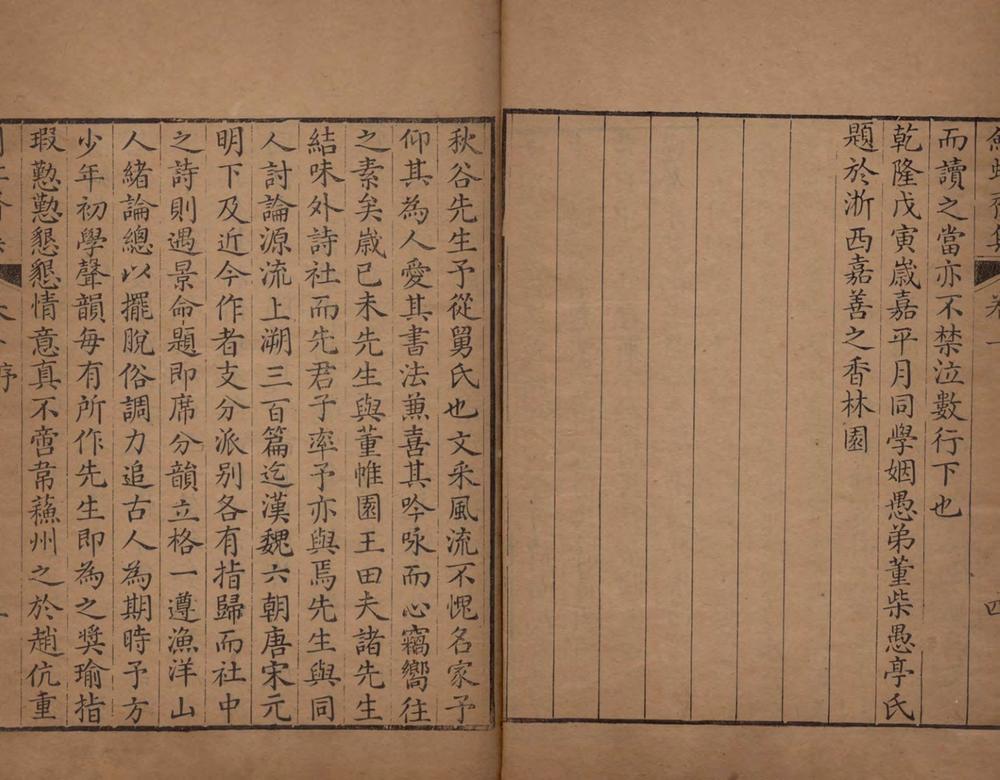 卷一
四
而讀之當亦不禁泣數行下也
乾隆戊寅歲嘉平月同學姻愚弟董柴愚亭氏
題於浙西嘉善之香林園
秋谷先生予從舅氏也文采風流不愧名家予
仰其為人愛其書法兼喜其吟咏而心竊嚮往
之素矣歲己未先生與董帷園王田夫諸先生
結味外詩社而先君子率予亦與焉先生與同
人討論源流上溯三百篇迄漢魏六朝唐宋元
明下及近今作者支分派別各有指歸而社中
之詩則遇景命題即席分韻立格一遵漁洋山
人緒論總以擺脫俗調力追古人為期時予方
少年初學聲韻每有所作先生即為之獎瑜指
瑕懃懃懇懇情意真不啻韋蘇州之於趙伉重
序